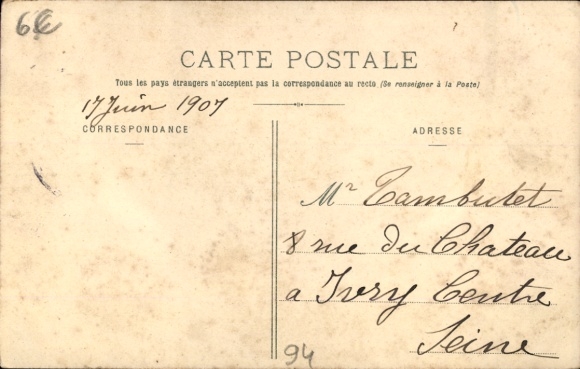 6€
CARTE POSTALE
Tous les pays étrangers n'acceptent pas la correspondance au recto (Se renseigner à la Poste)
17 Juin 1907
CORRESPONDANCE
ADRESSE
Mr Tambutet
8 rue du Chateau
a Ivry Centre
Seine
94